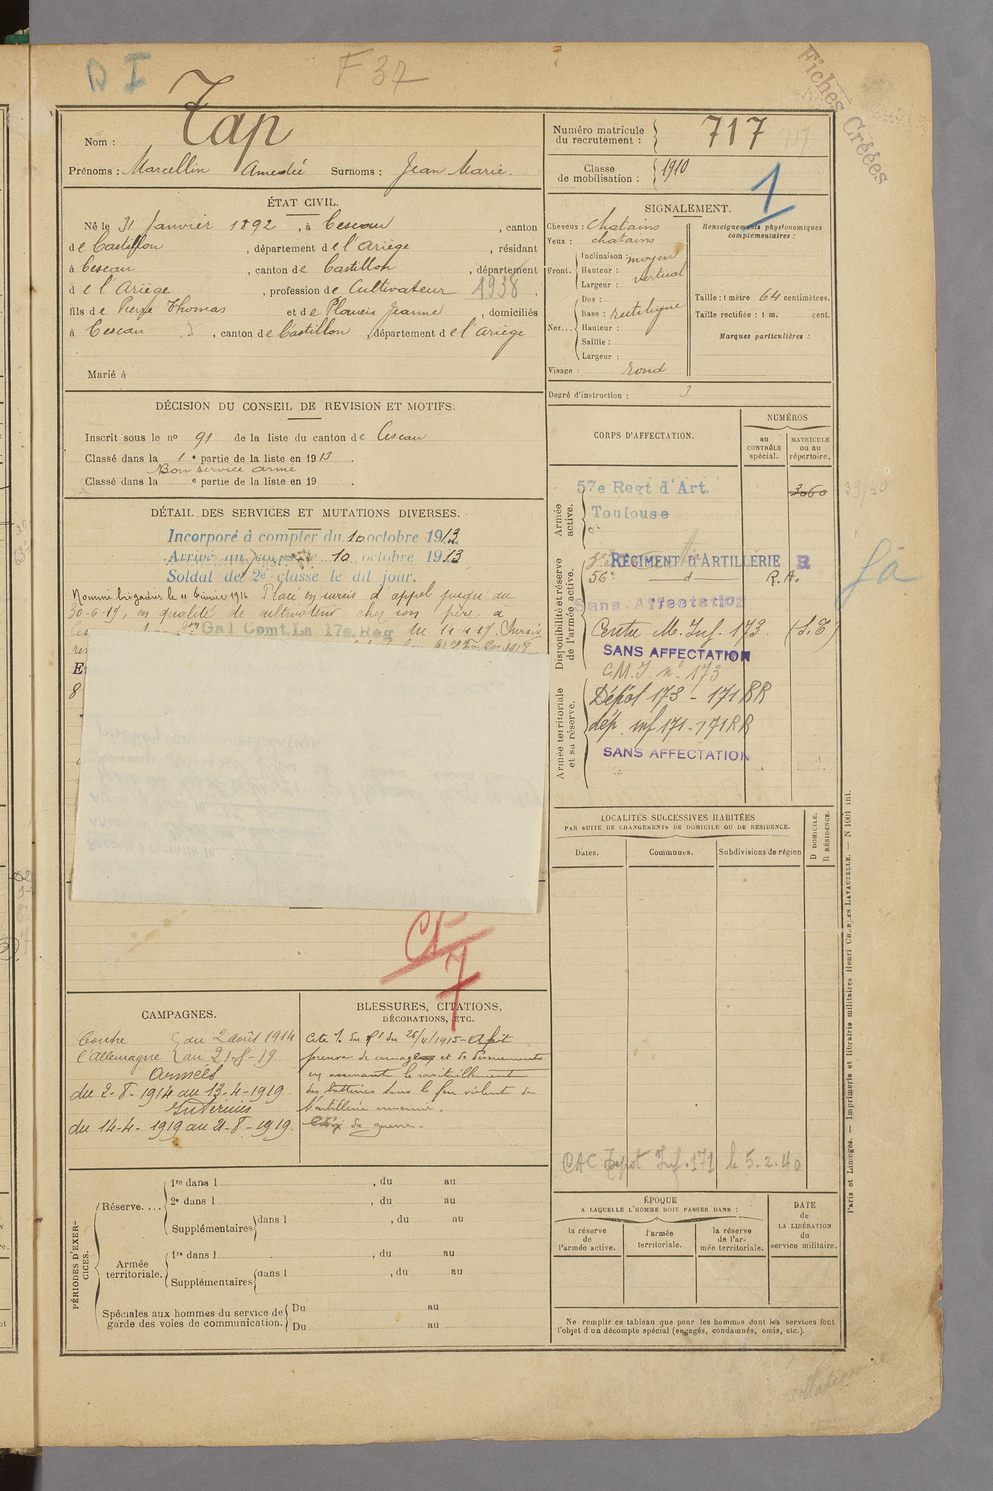 D I
F 37
Fiches Créées
Nom : Tap
Prénoms : Marcellin Amédée Surnoms : Jean Marie.
Numéro matricule du recrutement : 717
Classe de mobilisation : 1910
1
ÉTAT CIVIL.
Né le 31 Janvier 1892, à Cescau, canton
de Castillon, département de l'Ariège, résidant
à Cescau, canton de Castillon, département
d e l'Ariège, profession de Cultivateur 1938
fils de Pierre Thomas et de Jeanne, domiciliés
à Cescau, canton de Castillon, département de l'Ariège
Marié à
SIGNALEMENT.
Cheveux : chatains
Yeux : chatains
Front. Inclinaison : moyen
Hauteur : vertical
Largeur :
Nez... Dos :
Base : rectiligne
Hauteur :
Saillie :
Largeur :
Visage : rond
Renseignements physionomiques complémentaires :
Taille : 1 mètre 64 centimètres.
Taille rectifiée : 1 m. cent.
Marques particulières :
Degré d'instruction : 3
DÉCISION DU CONSEIL DE REVISION ET MOTIFS.
Inscrit sous le no 91 de la liste du canton de Cescau
Classé dans la 1e partie de la liste en 1913.
Bon service armé
Classé dans la e partie de la liste en 19 .
DÉTAIL DES SERVICES ET MUTATIONS DIVERSES.
Incorporé à compter du 10 octobre 1913.
Arrivé au corps le 10 octobre 1913
Soldat de 2e classe le dit jour.
Nommé brigadier le 11 1916 Placé en sursis d'appel jusqu'au
30-6-19, en qualité de cultivateur chez son père à
Gal Comt. La 17e Reg du Sursis
CORPS D'AFFECTATION.
NUMÉROS
au CONTRÔLE spécial.
MATRICULE ou au répertoire.
Armée active.
57e Regt d'Art.
Toulouse
3060
39/40
Disponibilité et réserve de l'armée active.
RÉGIMENT D'ARTILLERIE R
56e d R.A.
Sans Affectation
Centre M. Inf. 173 (S.E)
SANS AFFECTATION
C.M.I n° 173
Armée territoriale et sa réserve.
Dépôt 173 - 171 RR
dép. inf 171 - 171 RR
SANS AFFECTATION
LOCALITÉS SUCCESSIVES HABITÉES
PAR SUITE DE CHANGEMENTS DE DOMICILE OU DE RÉSIDENCE.
Dates.
Communes.
Subdivisions de région
D DOMICILE.
R RÉSIDENCE.
CAC Depot Inf. 171 le 5.2.40
CAMPAGNES.
Contre du 2 août 1914
l'Allemagne au 21-8-19
Armées
du 2-8-1914 au 13-4-1919
Intérieur
du 14-4-1919 au 21-8-1919.
BLESSURES, CITATIONS,
DÉCORATIONS, ETC.
Cité du 26/4/1915 - A fait
preuve de courage et de
en assurant le ravitaillement
des batteries sous le feu violent de
l'artillerie ennemie.
Croix de guerre.
PÉRIODES D'EXERCICES.
Réserve.... 1re dans l , du au
2e dans l , du au
Supplémentaires dans l , du au
Armée territoriale. 1re dans l , du au
Supplémentaires dans l , du au
Spéciales aux hommes du service de garde des voies de communication. Du au
Du au
ÉPOQUE
A LAQUELLE L'HOMME DOIT PASSER DANS :
la réserve de l'armée active.
l'armée territoriale.
la réserve de l'armée territoriale.
DATE de LA LIBÉRATION du service militaire.
Ne remplir ce tableau que pour les hommes dont les services font
l'objet d'un décompte spécial (engagés, condamnés, omis, etc.).
Paris et Limoges. — Imprimerie et librairie militaires Henri CHARLES-LAVAUZELLE. — N 1001 int.